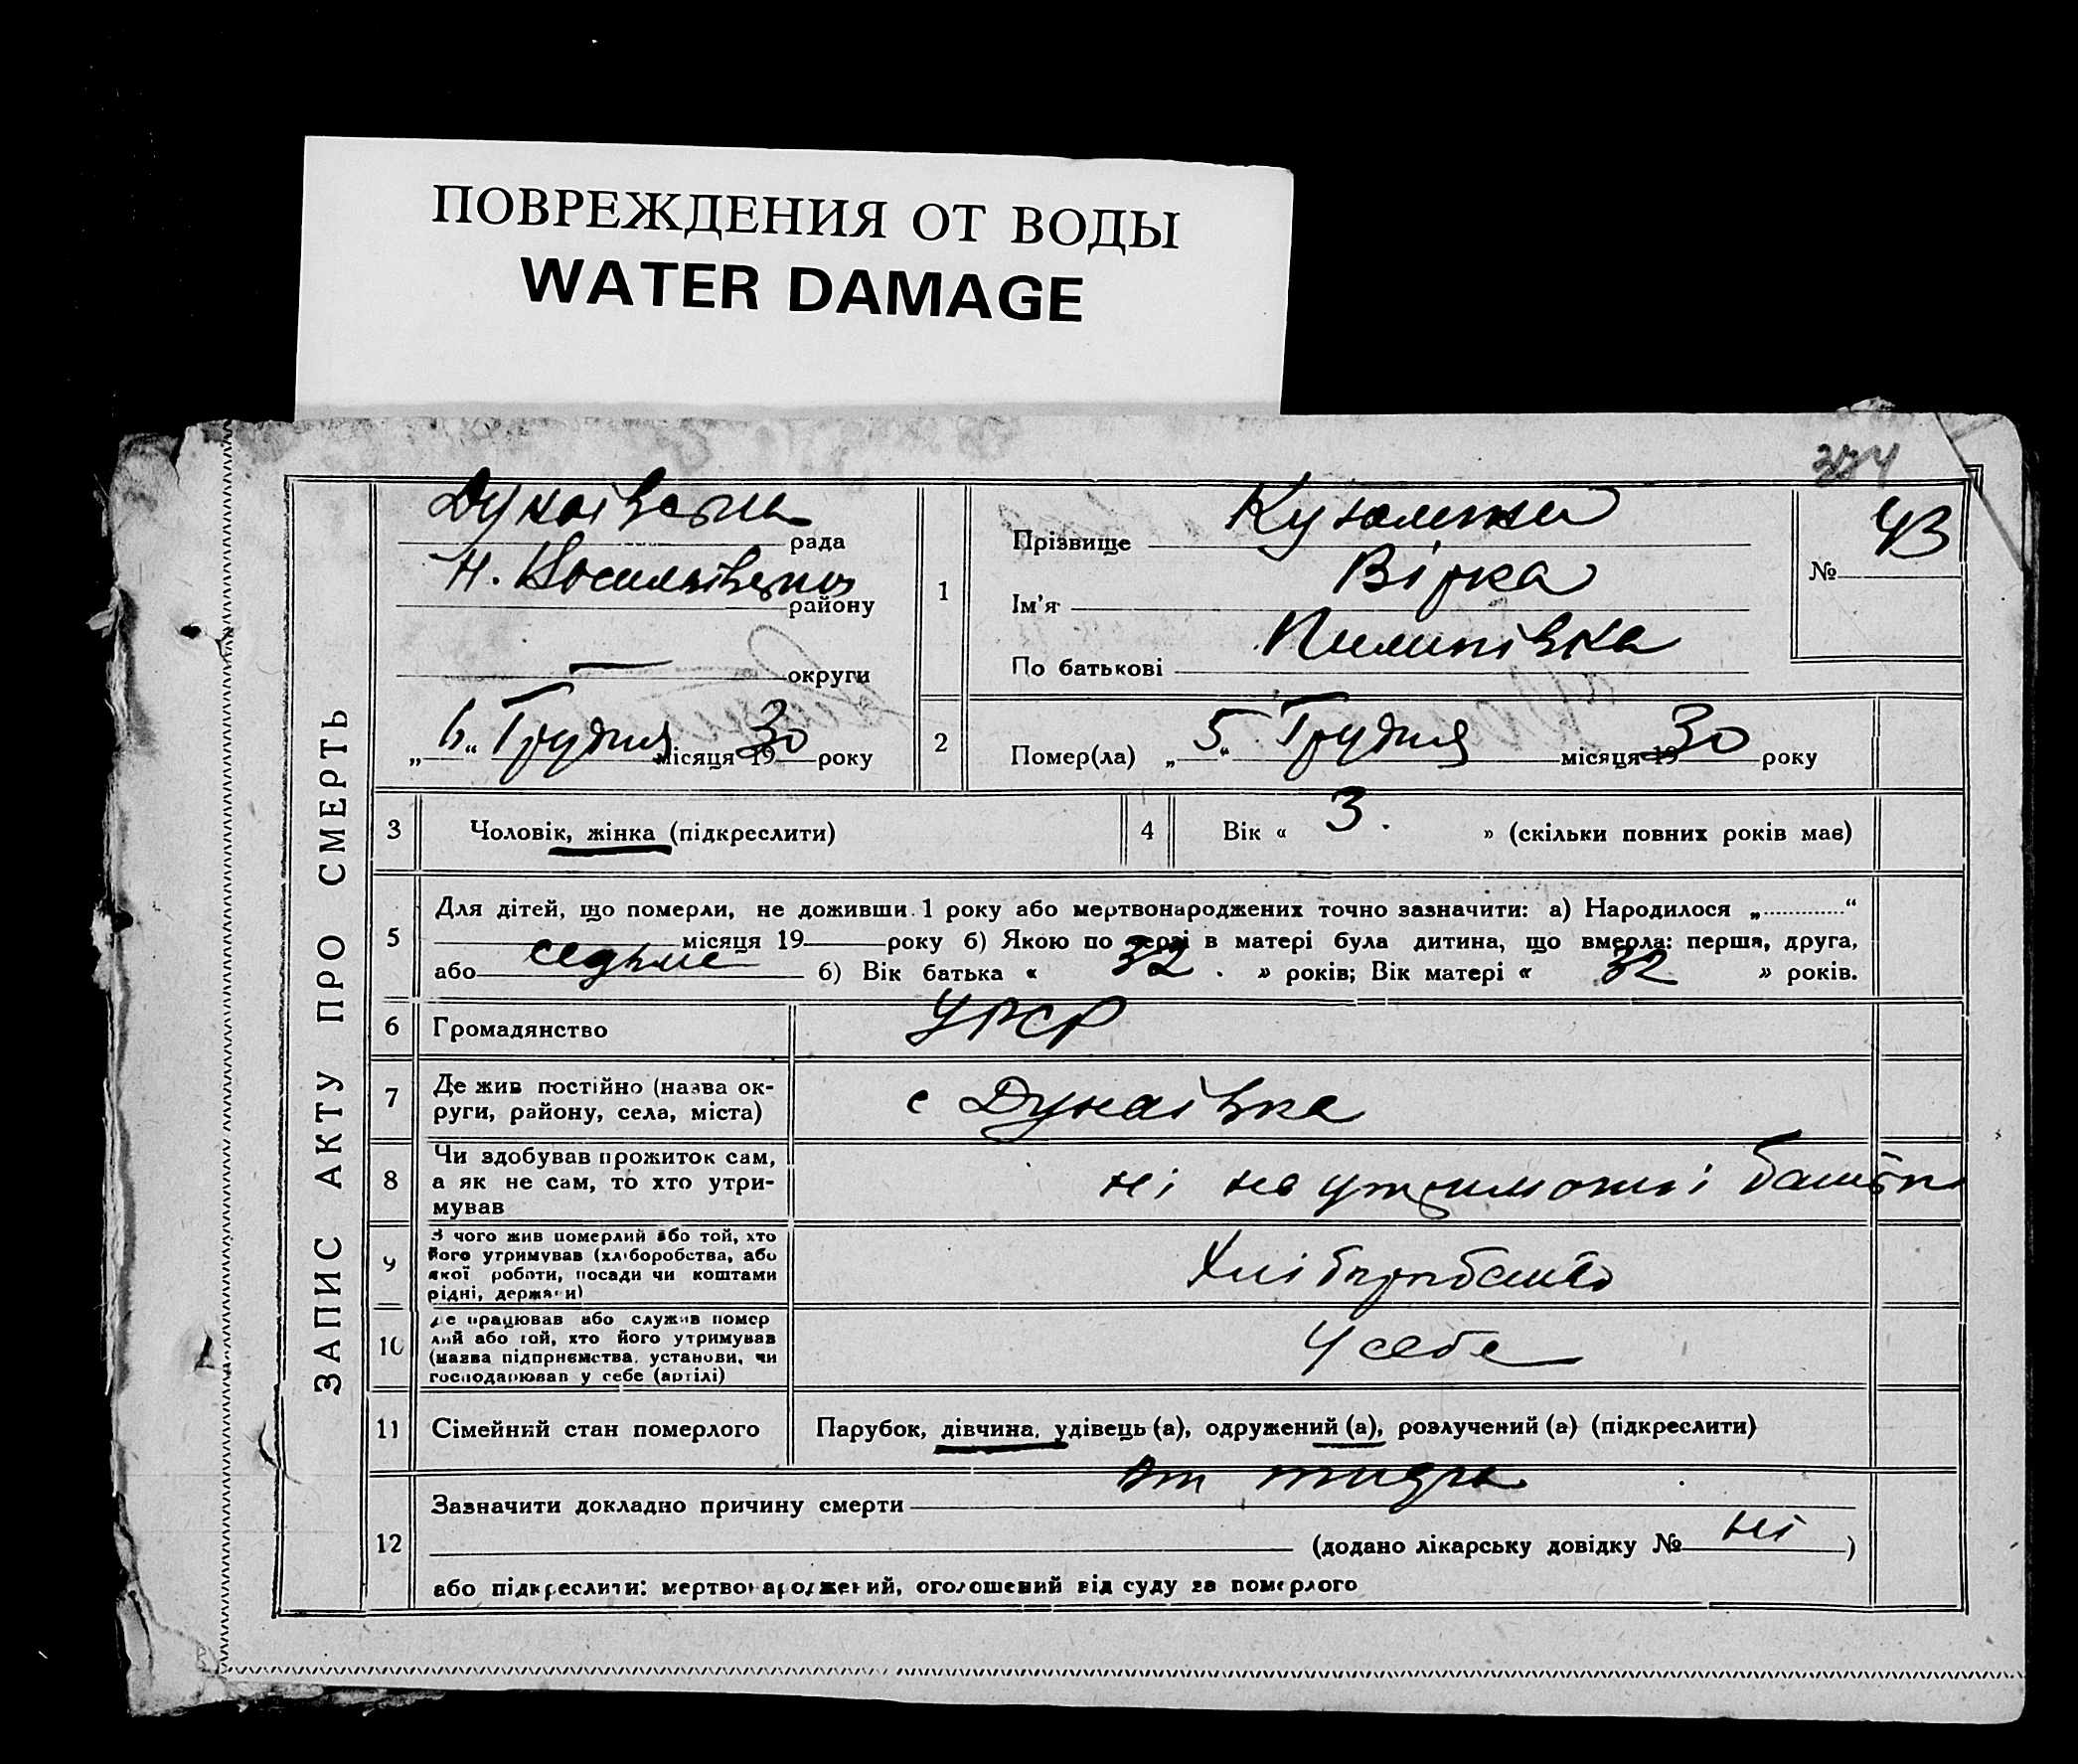 ПОВРЕЖДЕНИЯ ОТ ВОДЫ
WATER DAMAGE
ЗАПИС АКТУ ПРО СМЕРТЬ
Дунаівська рада
Н. району
— округи
„ 6 “ Грудня місяця 1930 року
1
Прізвище
Ім'я Вірка
По батькові Пилипівна
№ 43
2
Помер(ла) „ 5 “ Грудня місяця 1930 року
3 Чоловік, жінка (підкреслити)
4 Вік « 3. » (скільки повних років має)
5
Для дітей, що померли, не доживши 1 року або мертвонароджених точно зазначити: а) Народилося „ “
місяця 19 року б) Якою по черзі в матері була дитина, що вмерла: перша, друга,
або седьме б) Вік батька « 32 . » років; Вік матері « 32 » років.
6 Громадянство УРСР
7
Де жив постійно (назва ок-
руги, району, села, міста)
с Дунаівка
8
Чи здобував прожиток сам,
а як не сам, то хто утри-
мував
ні на батька
9
З чого жив померлий або той, хто
його утримував (хліборобства, або
якої роботи, посади чи коштами
рідні, держави)
Хліборобство
10
Де працював або служив помер
лий або той, хто його утримував
(назва підприємства, установи, чи
господарював у себе (артілі)
У себе
11 Сімейний стан померлого Парубок, дівчина, удівець (а), одружений (а), розлучений (а) (підкреслити)
12
Зазначити докладно причину смерти от
(додано лікарську довідку № ні )
або підкреслити: мертвонароджений, оголошений від суду за померлого